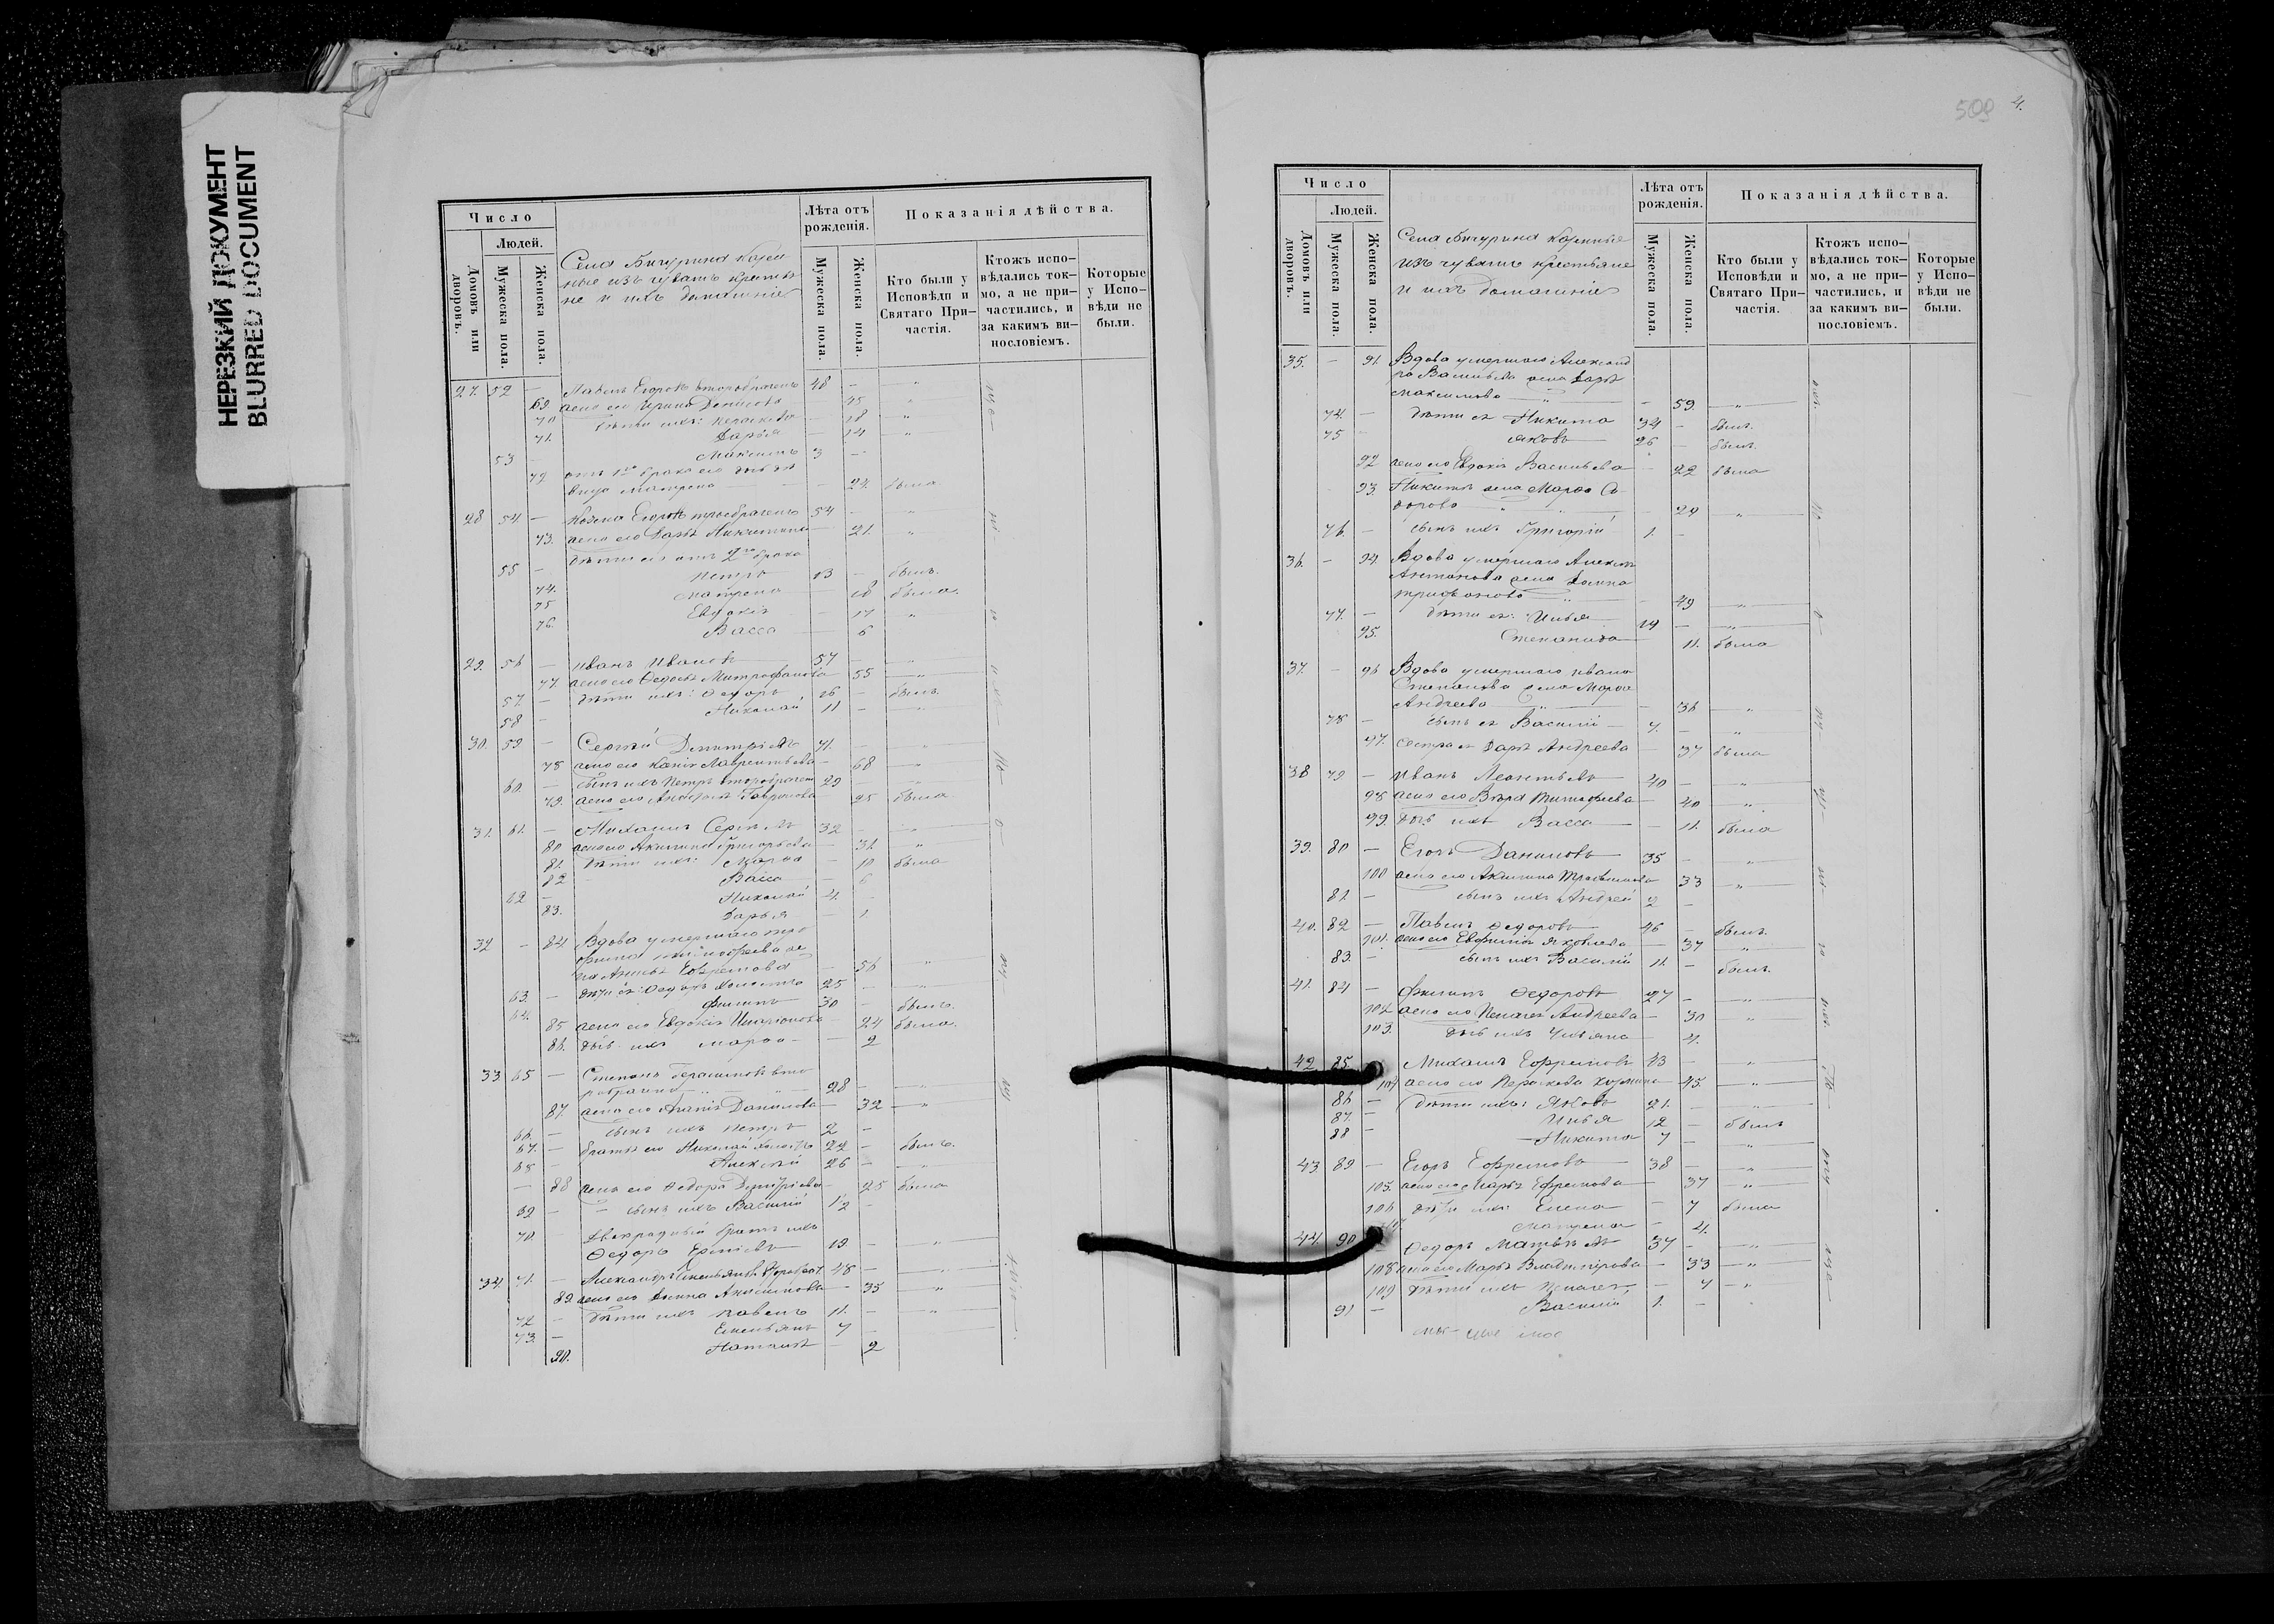 НЕРЕЗКИЙ ДОКУМЕНТ
BLURRED DOCUMENT
Число
Людей.
Домовъ или дворовъ.
Мужеска пола.
Женска пола.
Села Бичурина корен
ные изъ чувашъ крестья
не и ихъ домашніе
Лѣта отъ рожденія.
Мужеска пола.
Женска пола.
Показанія дѣйства.
Кто были у Исповѣди и Святаго Причастія.
Ктожъ исповѣдались токмо, а не причастились, и за какимъ винословіемъ.
Которые у Исповѣди не были.
27. 52 — Павелъ Егоровъ второбрачень 48 — "
69. жена его Ирина Денисова 45 "
70 Дѣти ихъ: Параскева 18 "
71. Дарья 14 "
53 — Максимъ 3 —
72 отъ 1го брака его дочь дѣ
вица Матрена — 24. была
28 54 — Козма Егоровъ троебрачень 54 — "
73. жена его Дарья Никитина 21. "
Дѣти его отъ 2го брака
55 — Петръ 13 — былъ.
74. Матрена — 18 была.
75 Евдокія — 17 "
76. Васса — 6
29. 56 — Иванъ Ивановъ 57 — "
77. жена его Федосья Митрофанова 55 "
57. — Дѣти ихъ: Федоръ 26 — былъ
58 — Николай 11 — "
30. 59 — Сергѣй Димитріевъ 71. — "
78 жена его Ксенія Лаврентьева — 68 "
60. — сынъ ихъ Петръ второбрачен 29 "
79. жена его Анастасія Гаврилова 25 была
31. 61. — Михаилъ Сергѣевъ 32 — "
80 жена его Акилина Григорьева — 31 "
81. Дѣти ихъ: Марѳа — 10 была
82 Васса — 6
62 — Николай 4. —
83. Дарья — 1
32 — 84 Вдова умершаго Тро
фима Тимофеева же
на Анисья Ефремова — 56 "
63. — дѣти ея: Федоръ холостъ 25 — "
64. Филипъ 30 — былъ.
85 жена его Евдокія Илларіонова 24 была.
86. дочь ихъ Марѳа — 2
33 65 — Степанъ Герасимовъ вто
робрачный 28 — "
87. жена его Агапія Данилова — 32 "
66. — сынъ ихъ Петръ 2 —
67. — братья его Николай холостъ 22 — былъ.
68 — Алексѣй 26 — "
— 88 жена его Федора Димитріева — 25 была
69 — сынъ ихъ Василій 1/2 —
70. — Двоюродный братъ ихъ
Федоръ 19. — "
34 71. — Александръ Емельяновъ второбрач. 48 — "
89 жена его Анна — 35 "
72 — Дѣти ихъ Павелъ 11. — "
73. — Емельянъ 7 —
90. Наталія — 2
509 4.
Число
Людей.
Домовъ или дворовъ.
Мужеска пола.
Женска пола.
Села Бичурина коренные
изъ чувашъ крестьяне
и ихъ домашніе
Лѣта отъ рожденія.
Мужеска пола.
Женска пола.
Показанія дѣйства.
Кто были у Исповѣди и Святаго Причастія.
Ктожъ исповѣдались токмо, а не причастились, и за какимъ винословіемъ.
Которые у Исповѣди не были.
35. — 91. Вдова умершаго Александ
ра Васильева жена Дарья
Максимова — 59. "
74. — дѣти ея Никита 34 — былъ.
75 — Яковъ 26 — былъ.
92 жена его Евдокія Васильева — 22 была
93. Никиты жена Марѳа Си
дорова — 29 "
76. — сынъ ихъ Григорій 1. —
36. — 94. Вдова умершаго Алексѣя
Антонова жена Домна
Трифонова — 49 "
77. — дѣти ея: Илья 19 — "
95. Степанида 11. была
37. — 96 Вдова умершаго Ивана
Степанова жена Марѳа
Андреева — 36 "
78 — сынъ ея Василій 7. — "
97. сестра ея Дарья Андреева — 37 была
38 79 — Иванъ Леонтьевъ 40 — "
98 жена его Вѣра Тимофеева — 40 "
99. дочь ихъ Васса — 11. была
39. 80 — Егоръ Даниловъ 35 — "
100 жена его Акилина 33 "
81 — сынъ ихъ Андрей 2 —
40. 82 — Павелъ Федоровъ 46 — былъ.
101. жена его Евфимія Яковлева — 37 "
83. — сынъ ихъ Василій 11. — былъ.
41. 84 — Филипъ Федоровъ 27 — "
102 жена его Пелагея Андреева — 30 "
103. дочь ихъ Ульяна 4.
42 85 Михаилъ Ефремовъ 43 — "
104 жена его Параскева 45. "
86 — Дѣти ихъ: Яковъ 21. — "
87. — Илья 12 — былъ
88 — Никита 7 — "
43 89 — Егоръ Ефремовъ 38 — "
105. жена его Марья Ефремова 37 "
106 дѣти ихъ: Елена — 7 была
107. Матрена — 4.
44. 90 Федоръ Матвѣевъ 37 — "
108 жена его Марья — 33 "
109 Дѣти ихъ Пелагея — 7 "
91 — Василій 1. —